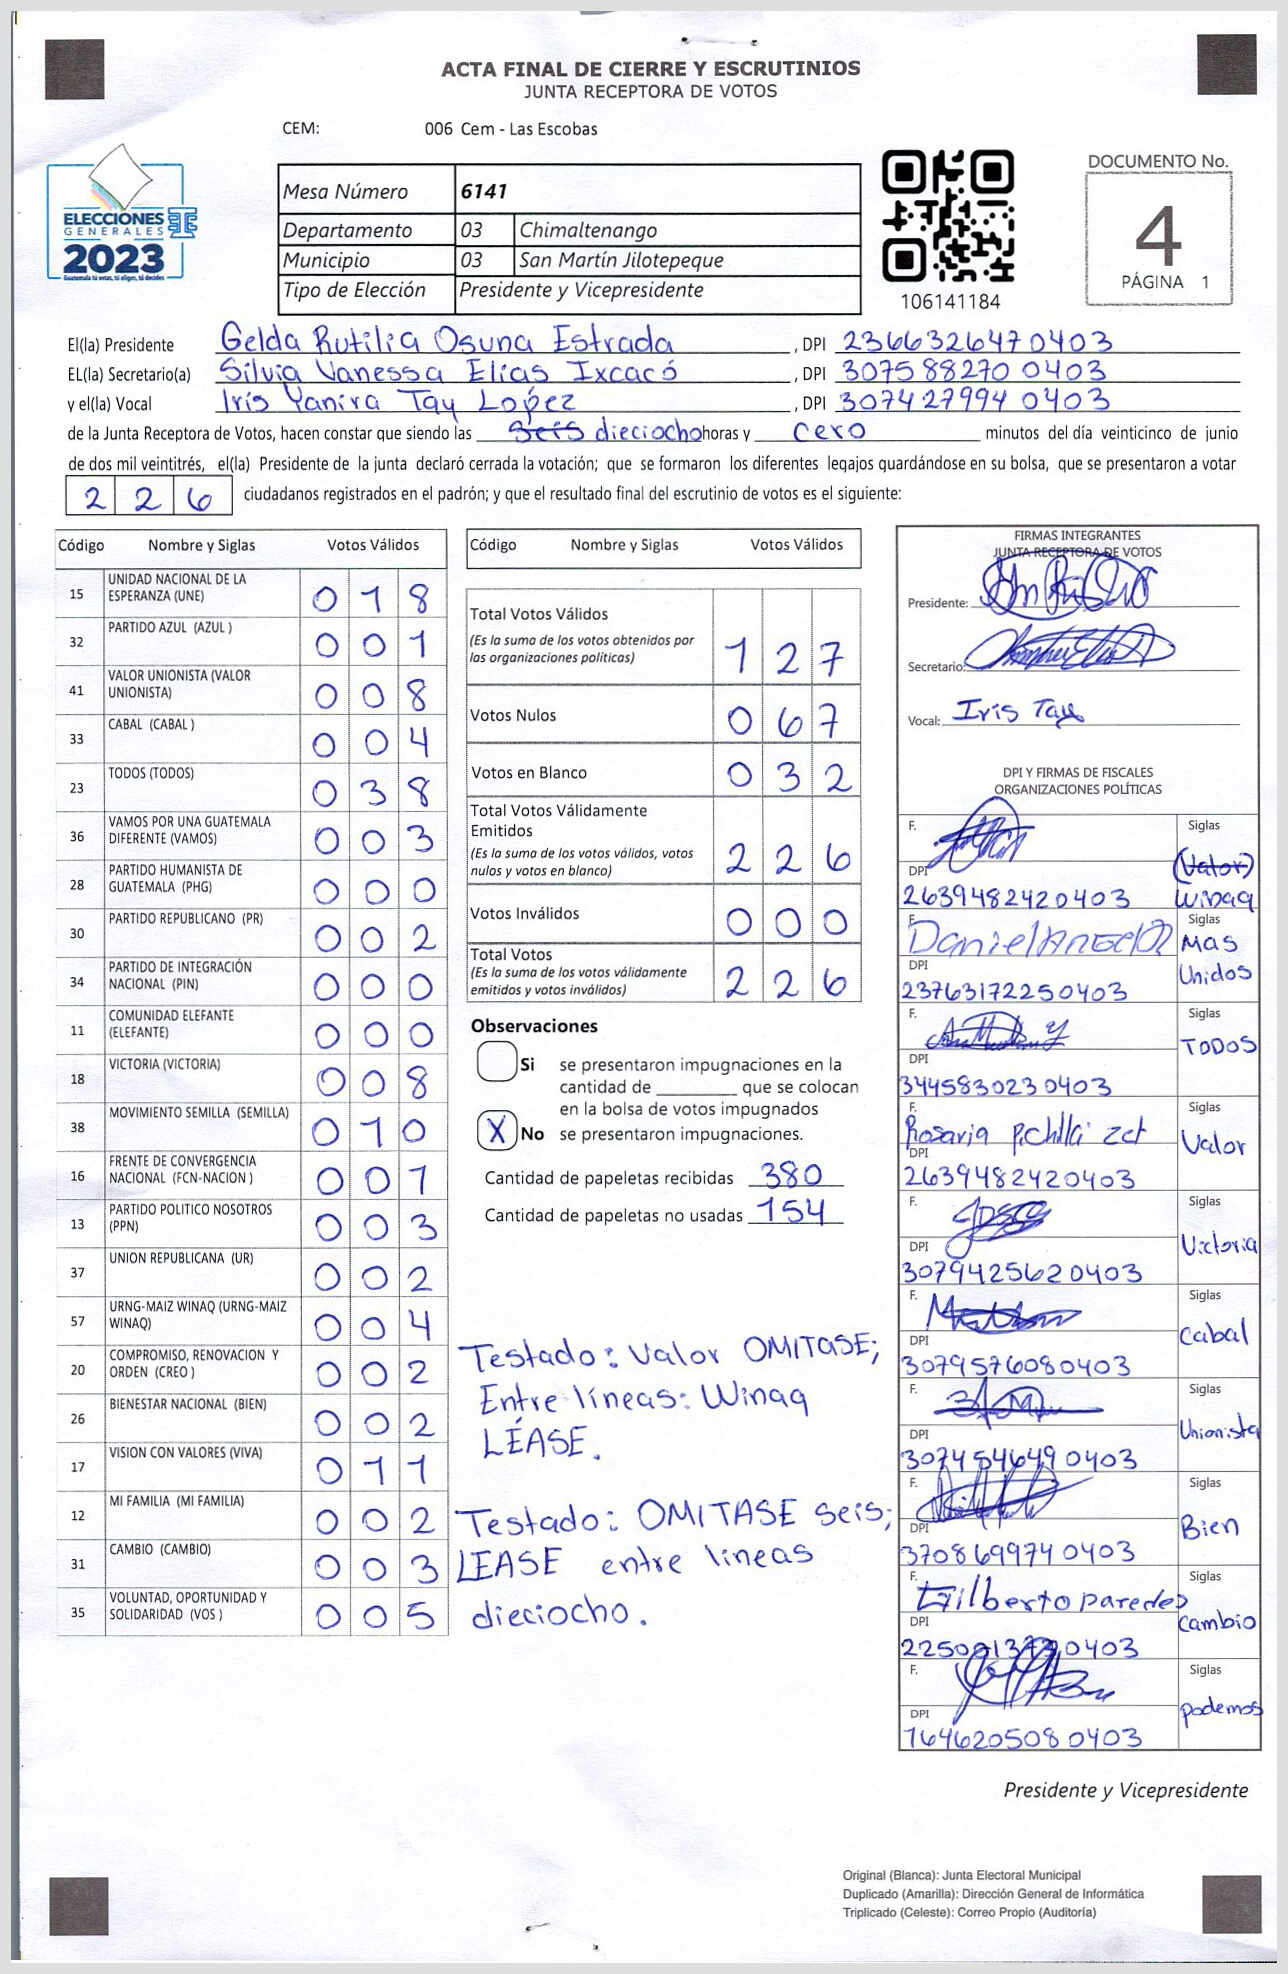 ACTA FINAL DE CIERRE Y ESCRUTINIOS
JUNTA RECEPTORA DE VOTOS
CEM: 006 Cem - Las Escobas
ELECCIONES
GENERALES
2023
Guatemala tú votas, tú eliges, tú decides
Mesa Número 6141
Departamento 03 Chimaltenango
Municipio 03 San Martín Jilotepeque
Tipo de Elección Presidente y Vicepresidente
106141184
DOCUMENTO No.
4
PÁGINA 1
El(la) Presidente Gelda Rutilia Osuna Estrada , DPI 2366326470403
EL(la) Secretario(a) Silvia Vanessa Elias Ixcacó , DPI 307588270 0403
y el(la) Vocal Iris Yanira Tay López , DPI 307427994 0403
de la Junta Receptora de Votos, hacen constar que siendo las seis dieciocho horas y cero minutos del día veinticinco de junio
de dos mil veintitrés, el(la) Presidente de la junta declaró cerrada la votación; que se formaron los diferentes legajos guardándose en su bolsa, que se presentaron a votar
2 2 6 ciudadanos registrados en el padrón; y que el resultado final del escrutinio de votos es el siguiente:
Código Nombre y Siglas Votos Válidos
15 UNIDAD NACIONAL DE LA
ESPERANZA (UNE) 0 1 8
32 PARTIDO AZUL (AZUL ) 0 0 1
41 VALOR UNIONISTA (VALOR
UNIONISTA) 0 0 8
33 CABAL (CABAL ) 0 0 4
23 TODOS (TODOS) 0 3 8
36 VAMOS POR UNA GUATEMALA
DIFERENTE (VAMOS) 0 0 3
28 PARTIDO HUMANISTA DE
GUATEMALA (PHG) 0 0 0
30 PARTIDO REPUBLICANO (PR) 0 0 2
34 PARTIDO DE INTEGRACIÓN
NACIONAL (PIN) 0 0 0
11 COMUNIDAD ELEFANTE
(ELEFANTE) 0 0 0
18 VICTORIA (VICTORIA) 0 0 8
38 MOVIMIENTO SEMILLA (SEMILLA) 0 1 0
16 FRENTE DE CONVERGENCIA
NACIONAL (FCN-NACION ) 0 0 1
13 PARTIDO POLITICO NOSOTROS
(PPN) 0 0 3
37 UNION REPUBLICANA (UR) 0 0 2
57 URNG-MAIZ WINAQ (URNG-MAIZ
WINAQ) 0 0 4
20 COMPROMISO, RENOVACION Y
ORDEN (CREO ) 0 0 2
26 BIENESTAR NACIONAL (BIEN) 0 0 2
17 VISION CON VALORES (VIVA) 0 1 1
12 MI FAMILIA (MI FAMILIA) 0 0 2
31 CAMBIO (CAMBIO) 0 0 3
35 VOLUNTAD, OPORTUNIDAD Y
SOLIDARIDAD (VOS ) 0 0 5
Código Nombre y Siglas Votos Válidos
Total Votos Válidos
(Es la suma de los votos obtenidos por
las organizaciones políticas) 1 2 7
Votos Nulos 0 6 7
Votos en Blanco 0 3 2
Total Votos Válidamente
Emitidos
(Es la suma de los votos válidos, votos
nulos y votos en blanco) 2 2 6
Votos Inválidos 0 0 0
Total Votos
(Es la suma de los votos válidamente
emitidos y votos inválidos) 2 2 6
Observaciones
Si se presentaron impugnaciones en la
cantidad de ________ que se colocan
en la bolsa de votos impugnados
X No se presentaron impugnaciones.
Cantidad de papeletas recibidas 380
Cantidad de papeletas no usadas 154
Testado: Valor OMITASE;
Entre líneas: Winaq
LÉASE.
Testado: OMITASE seis;
LEASE entre lineas
dieciocho.
FIRMAS INTEGRANTES
JUNTA RECEPTORA DE VOTOS
Presidente:
Secretario:
Vocal: Iris Tay
DPI Y FIRMAS DE FISCALES
ORGANIZACIONES POLÍTICAS
F. Siglas
(Valor)
DPI
2639482420403 Winaq
F. Siglas
Mas
DPI Unidos
2376317225 0403
F. Siglas
TODOS
DPI
344583023 0403
F. Siglas
Rosaria Pichilla Zet Valor
DPI
2639482420403
F. Siglas
Victoria
DPI
3079425620403
F. Siglas
Cabal
DPI
3079576080403
F. Siglas
Unionista
DPI
307454649 0403
F. Siglas
Bien
DPI
370869974 0403
F. Siglas
Gilberto paredes
DPI Cambio
0403
F. Siglas
podemos
DPI
164620508 0403
Presidente y Vicepresidente
Original (Blanca): Junta Electoral Municipal
Duplicado (Amarilla): Dirección General de Informática
Triplicado (Celeste): Correo Propio (Auditoría)